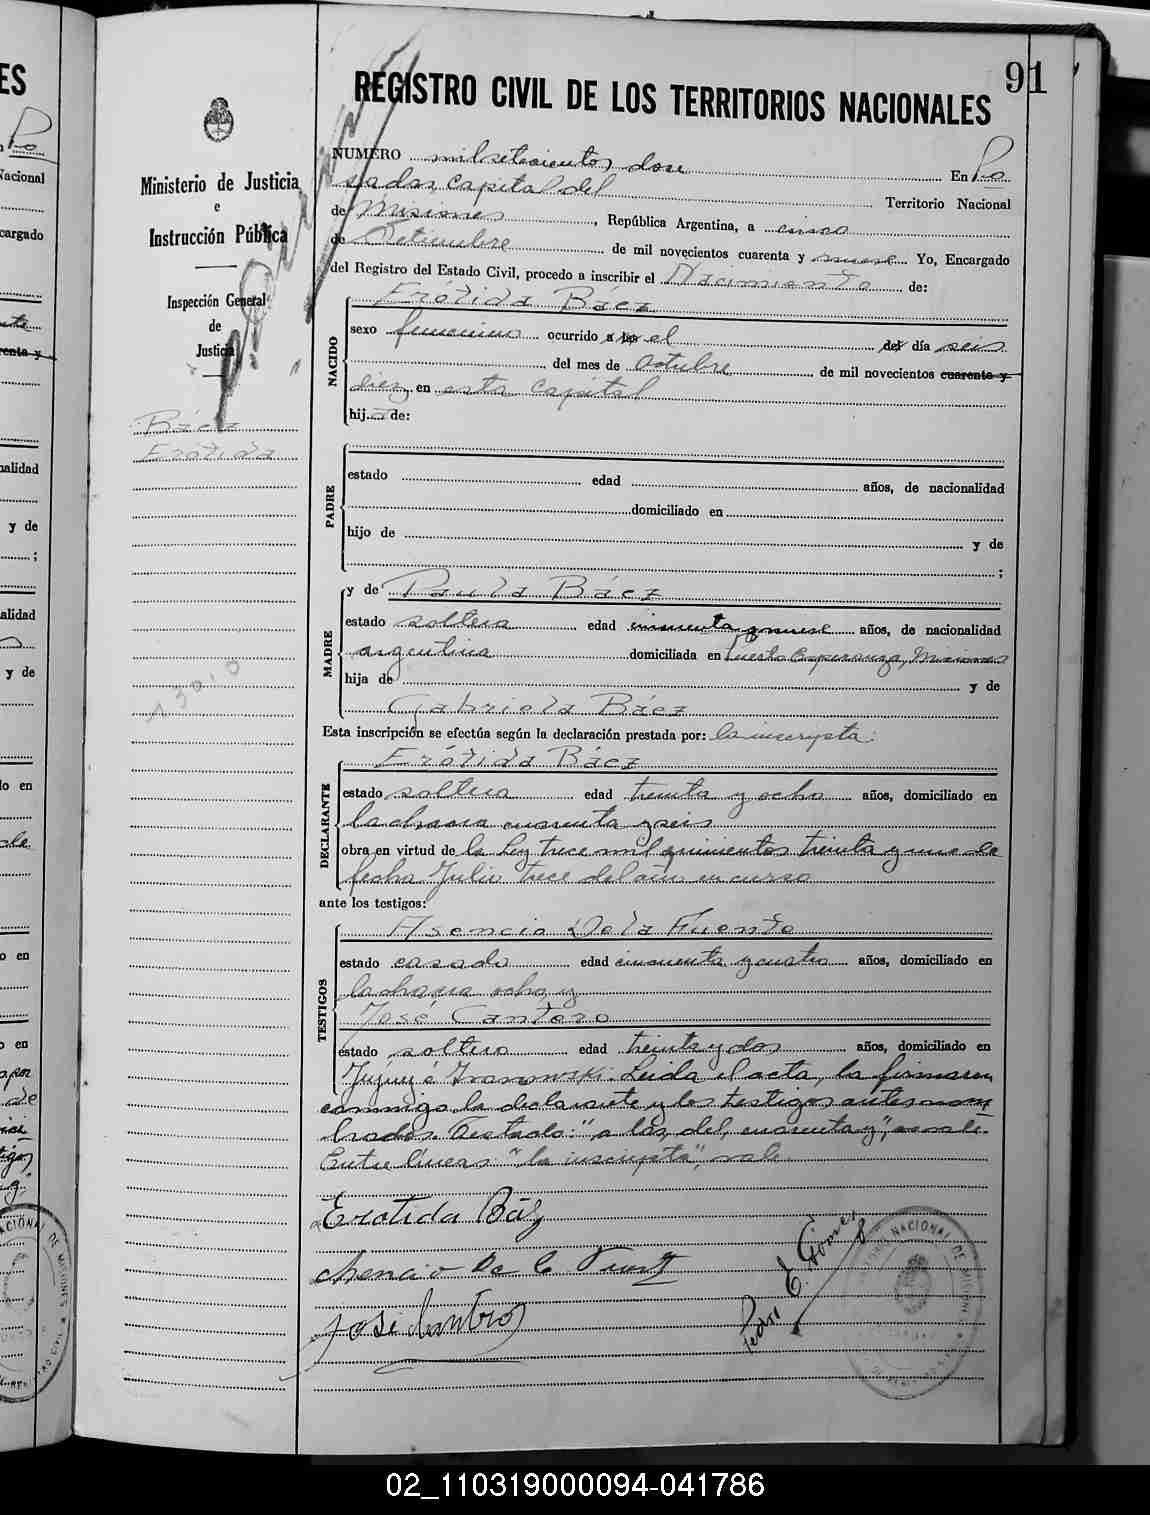 91
REGISTRO CIVIL DE LOS TERRITORIOS NACIONALES
Ministerio de Justicia
e
Instrucción Pública
Inspección General
de
Justicia
Báez
Erótida
NUMERO milsetecientos doce En Po
sadas capital del Territorio Nacional
de Misiones, República Argentina, a cinco
de Setiembre de mil novecientos cuarenta y nueve Yo, Encargado
del Registro del Estado Civil, procedo a inscribir el Nacimiento de:
NACIDO
Erótida Báez
sexo femenino ocurrido a las el del día seis
del mes de Octubre de mil novecientos cuarenta y
diez en esta capital
hija de:
PADRE
estado edad años, de nacionalidad
domiciliado en
hijo de y de
;
MADRE
y de Paula Báez
estado soltera edad cincuenta y nueve años, de nacionalidad
argentina domiciliada en Puerto Esperanza, Misiones
hija de y de
Gabriela Báez
Esta inscripción se efectúa según la declaración prestada por: la inscripta:
DECLARANTE
Erótida Báez
estado soltera edad treinta y ocho años, domiciliado en
la chacra cuarenta y seis
obra en virtud de la Ley trece mil quinientos treinta y uno de
fecha Julio trece del año en curso
ante los testigos:
TESTIGOS
Asencio De la Fuente
estado casado edad cincuenta y cuatro años, domiciliado en
la chacra ocho, y
José Cantero
estado soltero edad treinta y dos años, domiciliado en
Jujuy é Ivanowski. Leida el acta, la firmaron
conmigo la declarante y los testigos antesnom
brados. Testado: "a las, del, cuarenta y", no vale.
Entre líneas: "la inscripta", vale.
Erotida Báz
José Cantero
Pedro E. Gómez
02_110319000094-041786